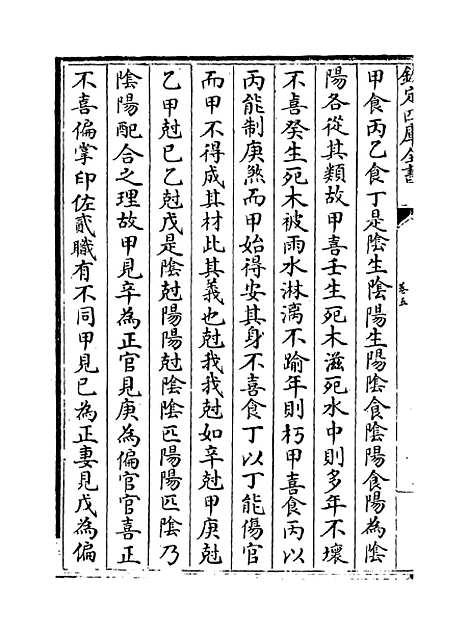 欽定四庫全書
卷五
甲食丙乙食丁是陰生陰陽生陽陰食陰陽食陽為陰
陽各從其類故甲喜壬生死木滋死水中則多年不壞
不喜癸生死木被雨水淋漓不踰年則朽甲喜食丙以
丙能制庚煞而甲始得安其身不喜食丁以丁能傷官
而甲不得成其材此其義也尅我我尅如辛尅甲庚尅
乙甲尅已乙尅戊是陰尅陽陽尅陰陰匹陽陽匹陰乃
陰陽配合之理故甲見辛為正官見庚為偏官官喜正
不喜偏掌印佐貳職有不同甲見已為正妻見戊為偏